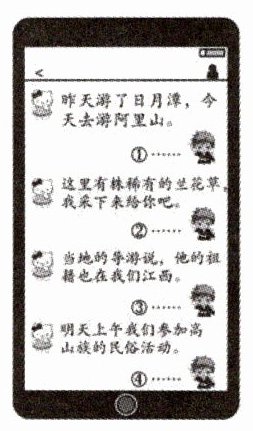 <
昨天游了日月潭，今
天去游阿里山。
①……
这里有株稀有的兰花草，
我采下来给你吧。
②……
当地的导游说，他的祖
籍也在我们江西。
③……
明天上午我们参加高
山族的民俗活动。
④……